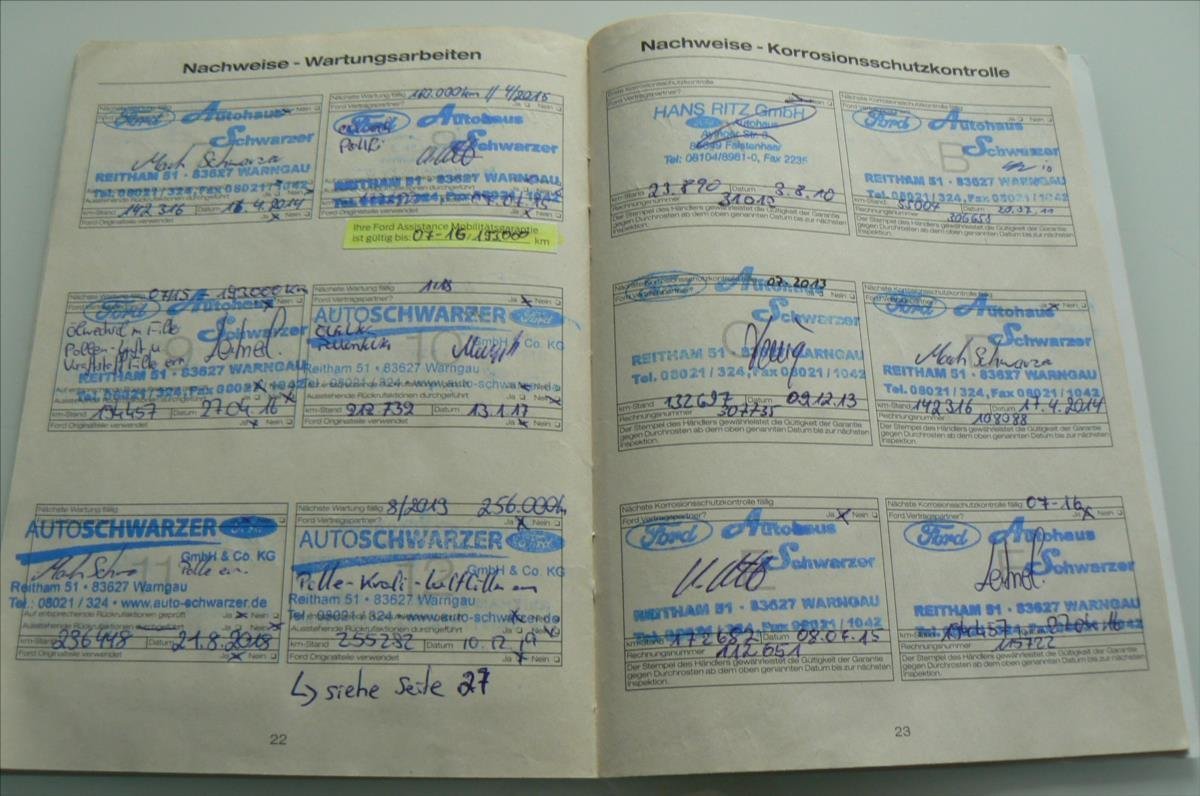 Nachweise - Wartungsarbeiten
Nächste Wartung fällig
Ja Nein
Ford Autohaus
Schwarzer
REITHAM 51 · 83627 WARNGAU
Tel. 08021 / 324, Fax 08021 / 1042
km-Stand 142 316 Datum 2014
Ford Originalteile verwendet
Nächste Wartung fällig 4/2015
Ford Vertragspartner? Ja Nein
Ford Autohaus
Schwarzer
REITHAM 51 · 83627 WARNGAU
Ford Originalteile verwendet
Ihre Ford Assistance Mobilitätsgarantie
ist gültig bis: 07-16 / 193.000 km
Nächste Wartung fällig 07/15 - 193.000 km
Ford Autohaus
Schwarzer
Ölwechsel
Pollen-Luft u
REITHAM 51 · 83627 WARNGAU
Tel. 08021 / 324, Fax 08021 / 1042
Ausstehende Rückrufaktionen durchgeführt
km-Stand 194457 Datum 27.04.16
Ford Originalteile verwendet
Nächste Wartung fällig 1/18
Ford Vertragspartner? Ja Nein
AUTOSCHWARZER Ford
GmbH & Co. KG
Reitham 51 · 83627 Warngau
Tel.: 08021 / 324 · www.auto-schwarzer.de
Ausstehende Rückrufaktionen durchgeführt
km-Stand 212 739 Datum 13.1.17
Ford Originalteile verwendet
Nächste Wartung fällig
AUTOSCHWARZER
GmbH & Co. KG
Reitham 51 · 83627 Warngau
Tel.: 08021 / 324 · www.auto-schwarzer.de
Ausstehende Rückrufaktionen durchgeführt
km-Stand 236448 Datum 21.8.2018
Ford Originalteile verwendet
Nächste Wartung fällig 8/2019 256.000 km
Ford Vertragspartner? Ja Nein
AUTOSCHWARZER
GmbH & Co. KG
Reitham 51 · 83627 Warngau
Tel.: 08021 / 324 · www.auto-schwarzer.de
Ausstehende Rückrufaktionen durchgeführt
km-Stand 255232 Datum 10.12.
Ford Originalteile verwendet
↳ siehe Seite 27
22
Nachweise - Korrosionsschutzkontrolle
Erste Korrosionsschutzkontrolle
Ford Vertragspartner?
HANS RITZ GmbH
Autohaus
Ayinger Str.
Tel: 08104/8981-0, Fax 2235
km-Stand 23.890 Datum 3.8.10
Rechnungsnummer 31012
Der Stempel des Händlers gewährleistet die Gültigkeit der Garantie
gegen Durchrosten ab dem oben genannten Datum bis zur nächsten
Inspektion.
Nächste Korrosionsschutzkontrolle fällig
Ford Vertragspartner? Ja Nein
Ford Autohaus
Schwarzer
REITHAM 51 · 83627 WARNGAU
Tel. 08021 / 324, Fax 08021 / 1042
Rechnungsnummer 306653
Der Stempel des Händlers gewährleistet die Gültigkeit der Garantie
gegen Durchrosten ab dem oben genannten Datum bis zur nächsten
Inspektion.
Nächste Korrosionsschutzkontrolle fällig 07.2013
Autohaus
Schwarzer
REITHAM 51 · 83627 WARNGAU
Tel. 08021 / 324, Fax 08021 / 1042
km-Stand 132697 Datum 09.12.13
Rechnungsnummer 307735
Der Stempel des Händlers gewährleistet die Gültigkeit der Garantie
gegen Durchrosten ab dem oben genannten Datum bis zur nächsten
Inspektion.
Nächste Korrosionsschutzkontrolle fällig
Ja Nein
Ford Autohaus
Schwarzer
REITHAM 51 · 83627 WARNGAU
Tel. 08021 / 324, Fax 08021 / 1042
km-Stand 142316 Datum 17.4.2014
Rechnungsnummer 108988
Der Stempel des Händlers gewährleistet die Gültigkeit der Garantie
gegen Durchrosten ab dem oben genannten Datum bis zur nächsten
Inspektion.
Nächste Korrosionsschutzkontrolle fällig
Ford Vertragspartner? Ja Nein
Ford Autohaus
Schwarzer
REITHAM 51 · 83627 WARNGAU
Tel. 08021 / 324, Fax 08021 / 1042
km-Stand 172682 Datum 08.07.15
Rechnungsnummer 112651
Der Stempel des Händlers gewährleistet die Gültigkeit der Garantie
gegen Durchrosten ab dem oben genannten Datum bis zur nächsten
Inspektion.
Nächste Korrosionsschutzkontrolle fällig 07-16
Ford Vertragspartner? Ja Nein
Ford Autohaus
Schwarzer
REITHAM 51 · 83627 WARNGAU
Tel. 08021 / 324, Fax 08021 / 1042
194457 27.04.16
Rechnungsnummer 115722
Der Stempel des Händlers gewährleistet die Gültigkeit der Garantie
gegen Durchrosten ab dem oben genannten Datum bis zur nächsten
Inspektion.
23